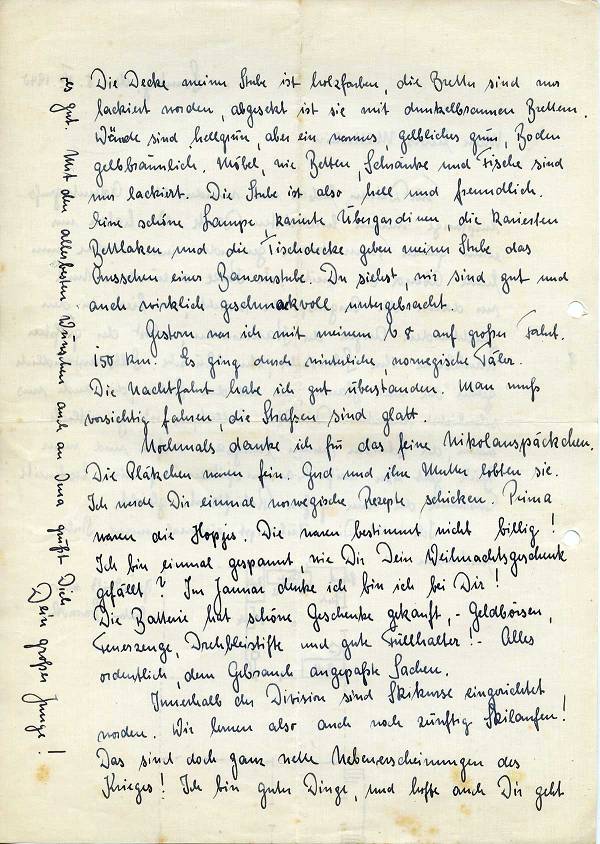 Die Decke meiner Stube ist holzfarben, die Bretter sind nur
lackiert worden, abgesetzt ist sie mit dunkelbraunen Brettern.
Wände sind hellgrün, aber ein warmes gelbliches grün, Boden
gelbbräunlich. Möbel, wie Betten, Schränke und Tische sind
nur lackiert. Die Stube ist also hell und freundlich.
Eine schöne Lampe, karierte Übergardinen, die karierten
Bettlaken und die Tischdecke geben meiner Stube das
Aussehen einer Bauernstube. Du siehst, wir sind gut und
auch wirklich geschmackvoll untergebracht.
Gestern war ich mit meinem V 8 auf großer Fahrt.
150 km. Es ging durch winterliche, norwegische Täler.
Die Nachtfahrt habe ich gut überstanden. Man muß
vorsichtig fahren, die Straßen sind glatt.
Nochmals danke ich für das feine Nikolauspäckchen.
Die Plätzchen waren fein. Gerd und ihre Mutter lobten sie.
Ich werde Dir einmal norwegische Rezepte schicken. Prima
waren die Hopjes. Die waren bestimmt nicht billig!
Ich bin einmal gespannt, wie Dir Dein Weihnachtsgeschenk
gefällt? Im Januar denke ich bin ich bei Dir!
Die Batterie hat schöne Geschenke gekauft, - Geldbörsen,
Feuerzeuge, Drehbleistifte und gute Füllhalter! - Alles
ordentlich, dem Gebrauch angepaßte Sachen.
Innerhalb der Division sind Skikurse eingerichtet
worden. Wir lernen also auch noch zünftig Skilaufen!
Das sind doch ganz nette Nebenerscheinungen des
Krieges! Ich bin guter Dinge, und hoffe auch Dir geht
es gut. Mit den allerbesten Wünschen auch an Oma grüßt Dich
Dein großer Junge!